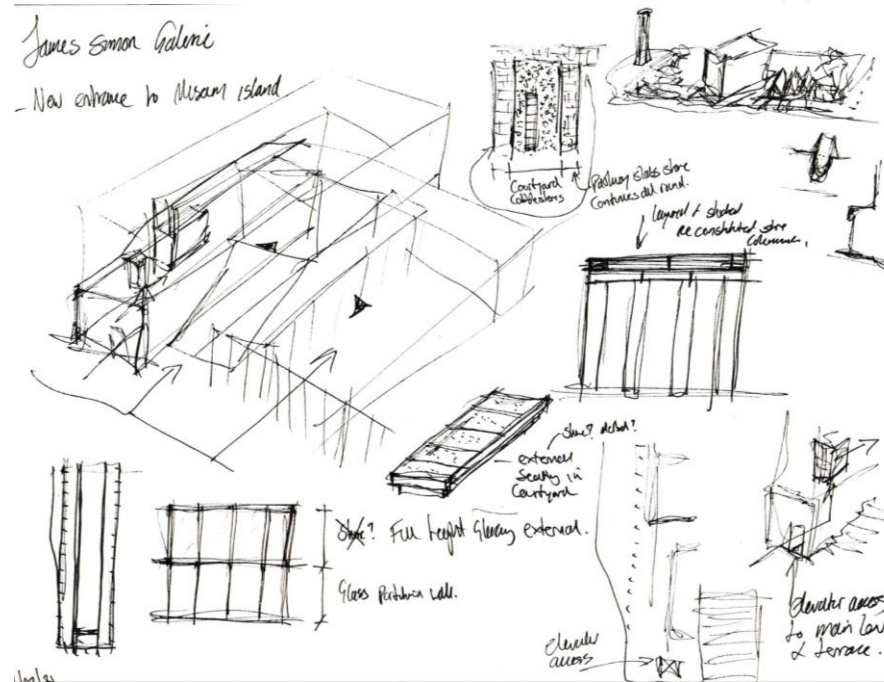 James Simon Galerie
- New entrance to Museum island
Courtyard
Cobblestones
Pathway slabs stone
Continues all round.
layered + stacked
reconstituted stone
columns.
Stone? detail?
external
Seating in
Courtyard
Stone? Full height Glazing external.
Glass Partition wall.
elevator
access
elevator access
to main lev
& terrace.